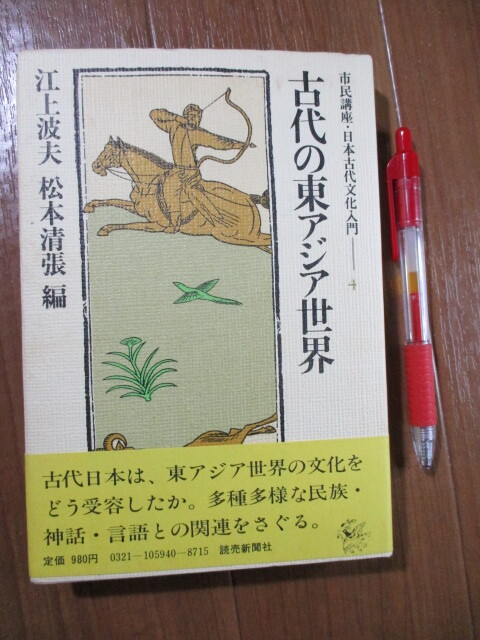 市民講座・日本古代文化入門——4
古代の東アジア世界
江上波夫 松本清張 編
古代日本は、東アジア世界の文化を
どう受容したか。多種多様な民族・
神話・言語との関連をさぐる。
定価 980円 0321—105940—8715 読売新聞社